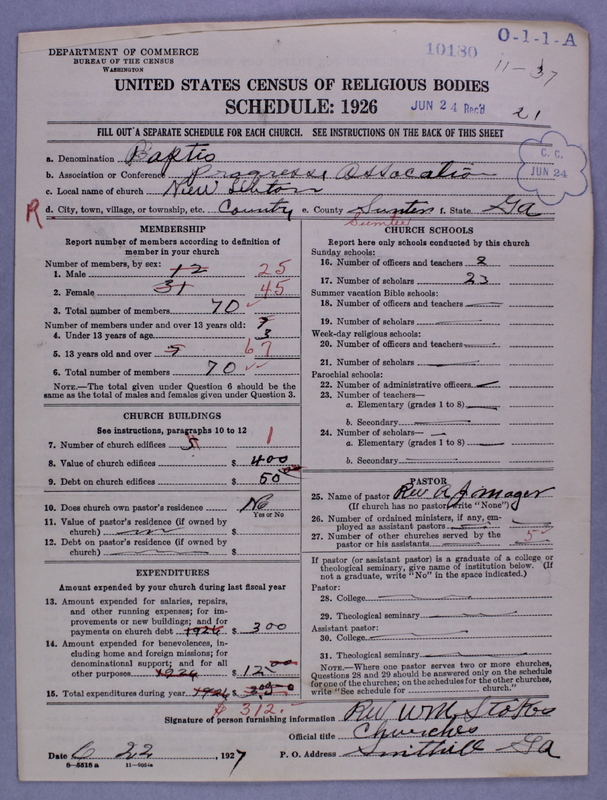 DEPARTMENT OF COMMERCE
BUREAU OF THE CENSUS
WASHINGTON
10180
O-1-1-A
11-37
UNITED STATES CENSUS OF RELIGIOUS BODIES
SCHEDULE: 1926
JUN 24 Rec'd
21
FILL OUT A SEPARATE SCHEDULE FOR EACH CHURCH. SEE INSTRUCTIONS ON THE BACK OF THIS SHEET
C. C.
JUN 24
a. Denomination Baptis
b. Association or Conference Progressi Ossocation
c. Local name of church New
R d. City, town, village, or township, etc. Country e. County Sumter f. State Ga
Sumter
MEMBERSHIP
Report number of members according to definition of member in your church
Number of members, by sex:
1. Male 12 25
2. Female 31 45
3. Total number of members 70
Number of members under and over 13 years old:
4. Under 13 years of age 3
5. 13 years old and over 67
6. Total number of members 70
NOTE.—The total given under Question 6 should be the same as the total of males and females given under Question 3.
CHURCH BUILDINGS
See instructions, paragraphs 10 to 12
7. Number of church edifices 1
8. Value of church edifices $ 400
9. Debt on church edifices $ 50
10. Does church own pastor's residence No
Yes or No
11. Value of pastor's residence (if owned by church) $
12. Debt on pastor's residence (if owned by church) $
EXPENDITURES
Amount expended by your church during last fiscal year
13. Amount expended for salaries, repairs, and other running expenses; for improvements or new buildings; and for payments on church debt 1926 $ 300
14. Amount expended for benevolences, including home and foreign missions; for denominational support; and for all other purposes 1926 $ 12 00
15. Total expenditures during year 1926 $
$ 312.—
CHURCH SCHOOLS
Report here only schools conducted by this church
Sunday schools:
16. Number of officers and teachers 2
17. Number of scholars 23
Summer vacation Bible schools:
18. Number of officers and teachers
19. Number of scholars
Week-day religious schools:
20. Number of officers and teachers
21. Number of scholars
Parochial schools:
22. Number of administrative officers
23. Number of teachers—
a. Elementary (grades 1 to 8)
b. Secondary
24. Number of scholars—
a. Elementary (grades 1 to 8)
b. Secondary
PASTOR
25. Name of pastor Rev A
(If church has no pastor, write "None")
26. Number of ordained ministers, if any, employed as assistant pastors
27. Number of other churches served by the pastor or his assistants 5
If pastor (or assistant pastor) is a graduate of a college or theological seminary, give name of institution below. (If not a graduate, write "No" in the space indicated.)
Pastor:
28. College
29. Theological seminary
Assistant pastor:
30. College
31. Theological seminary
NOTE.—Where one pastor serves two or more churches, Questions 28 and 29 should be answered only on the schedule for one of the churches; on the schedules for the other churches, write "See schedule for church."
Signature of person furnishing information Rev Wm Stokes
Official title Churches
Date 6 22 1927 P. O. Address Smithill Ga
8-5518a 11-9054a